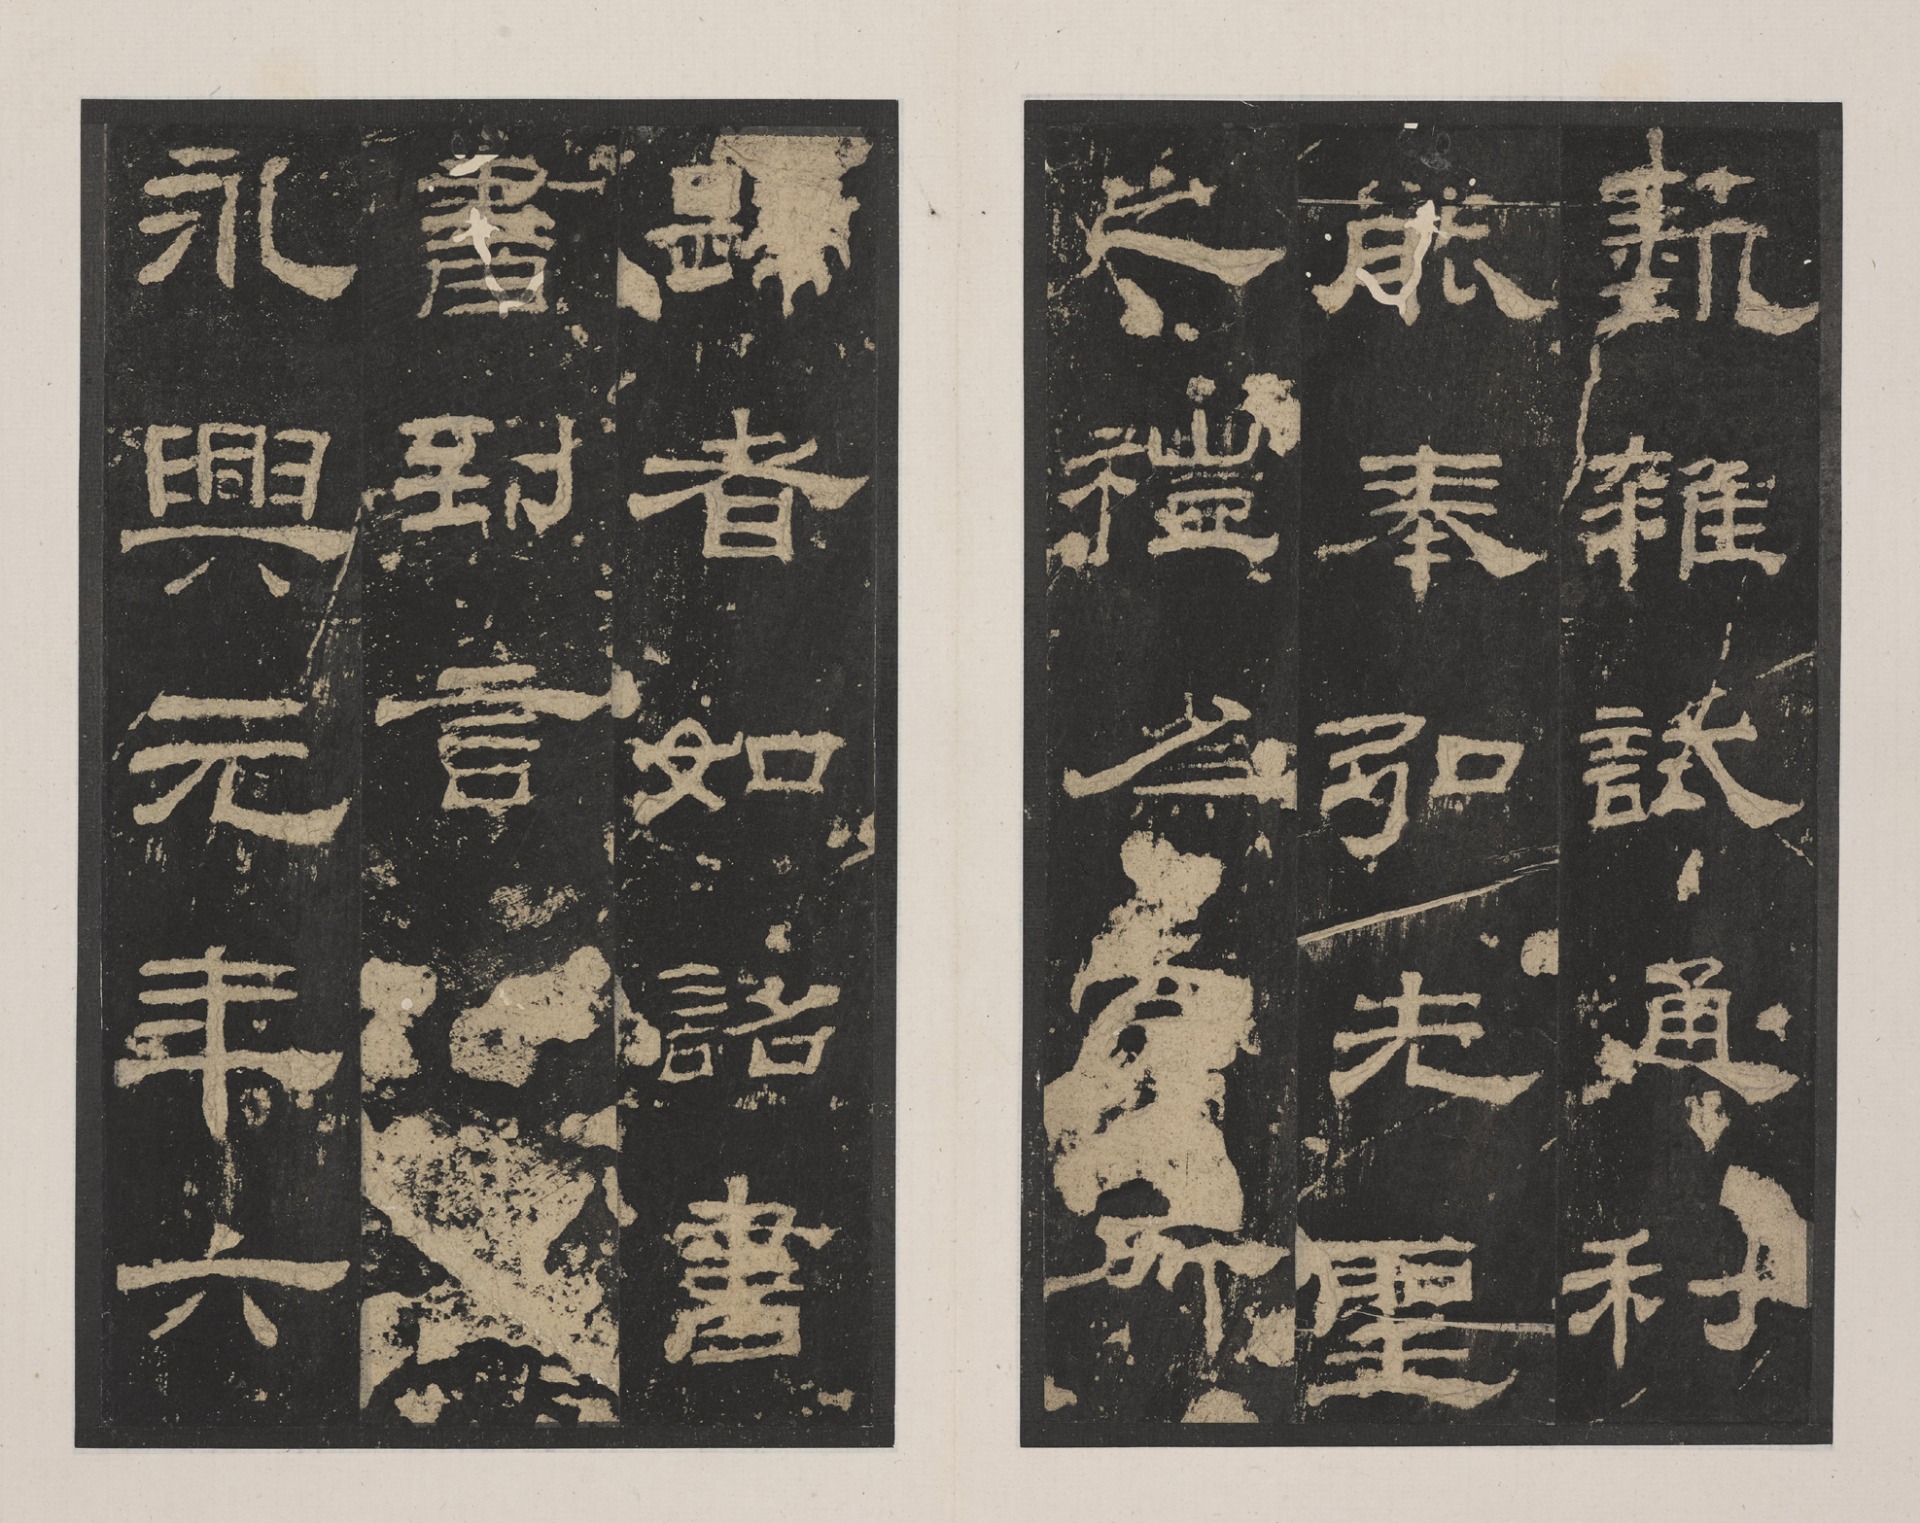 藝雜試通利
能奉弘先聖
之禮為所
歸者如詔書
書到言
永興元年六